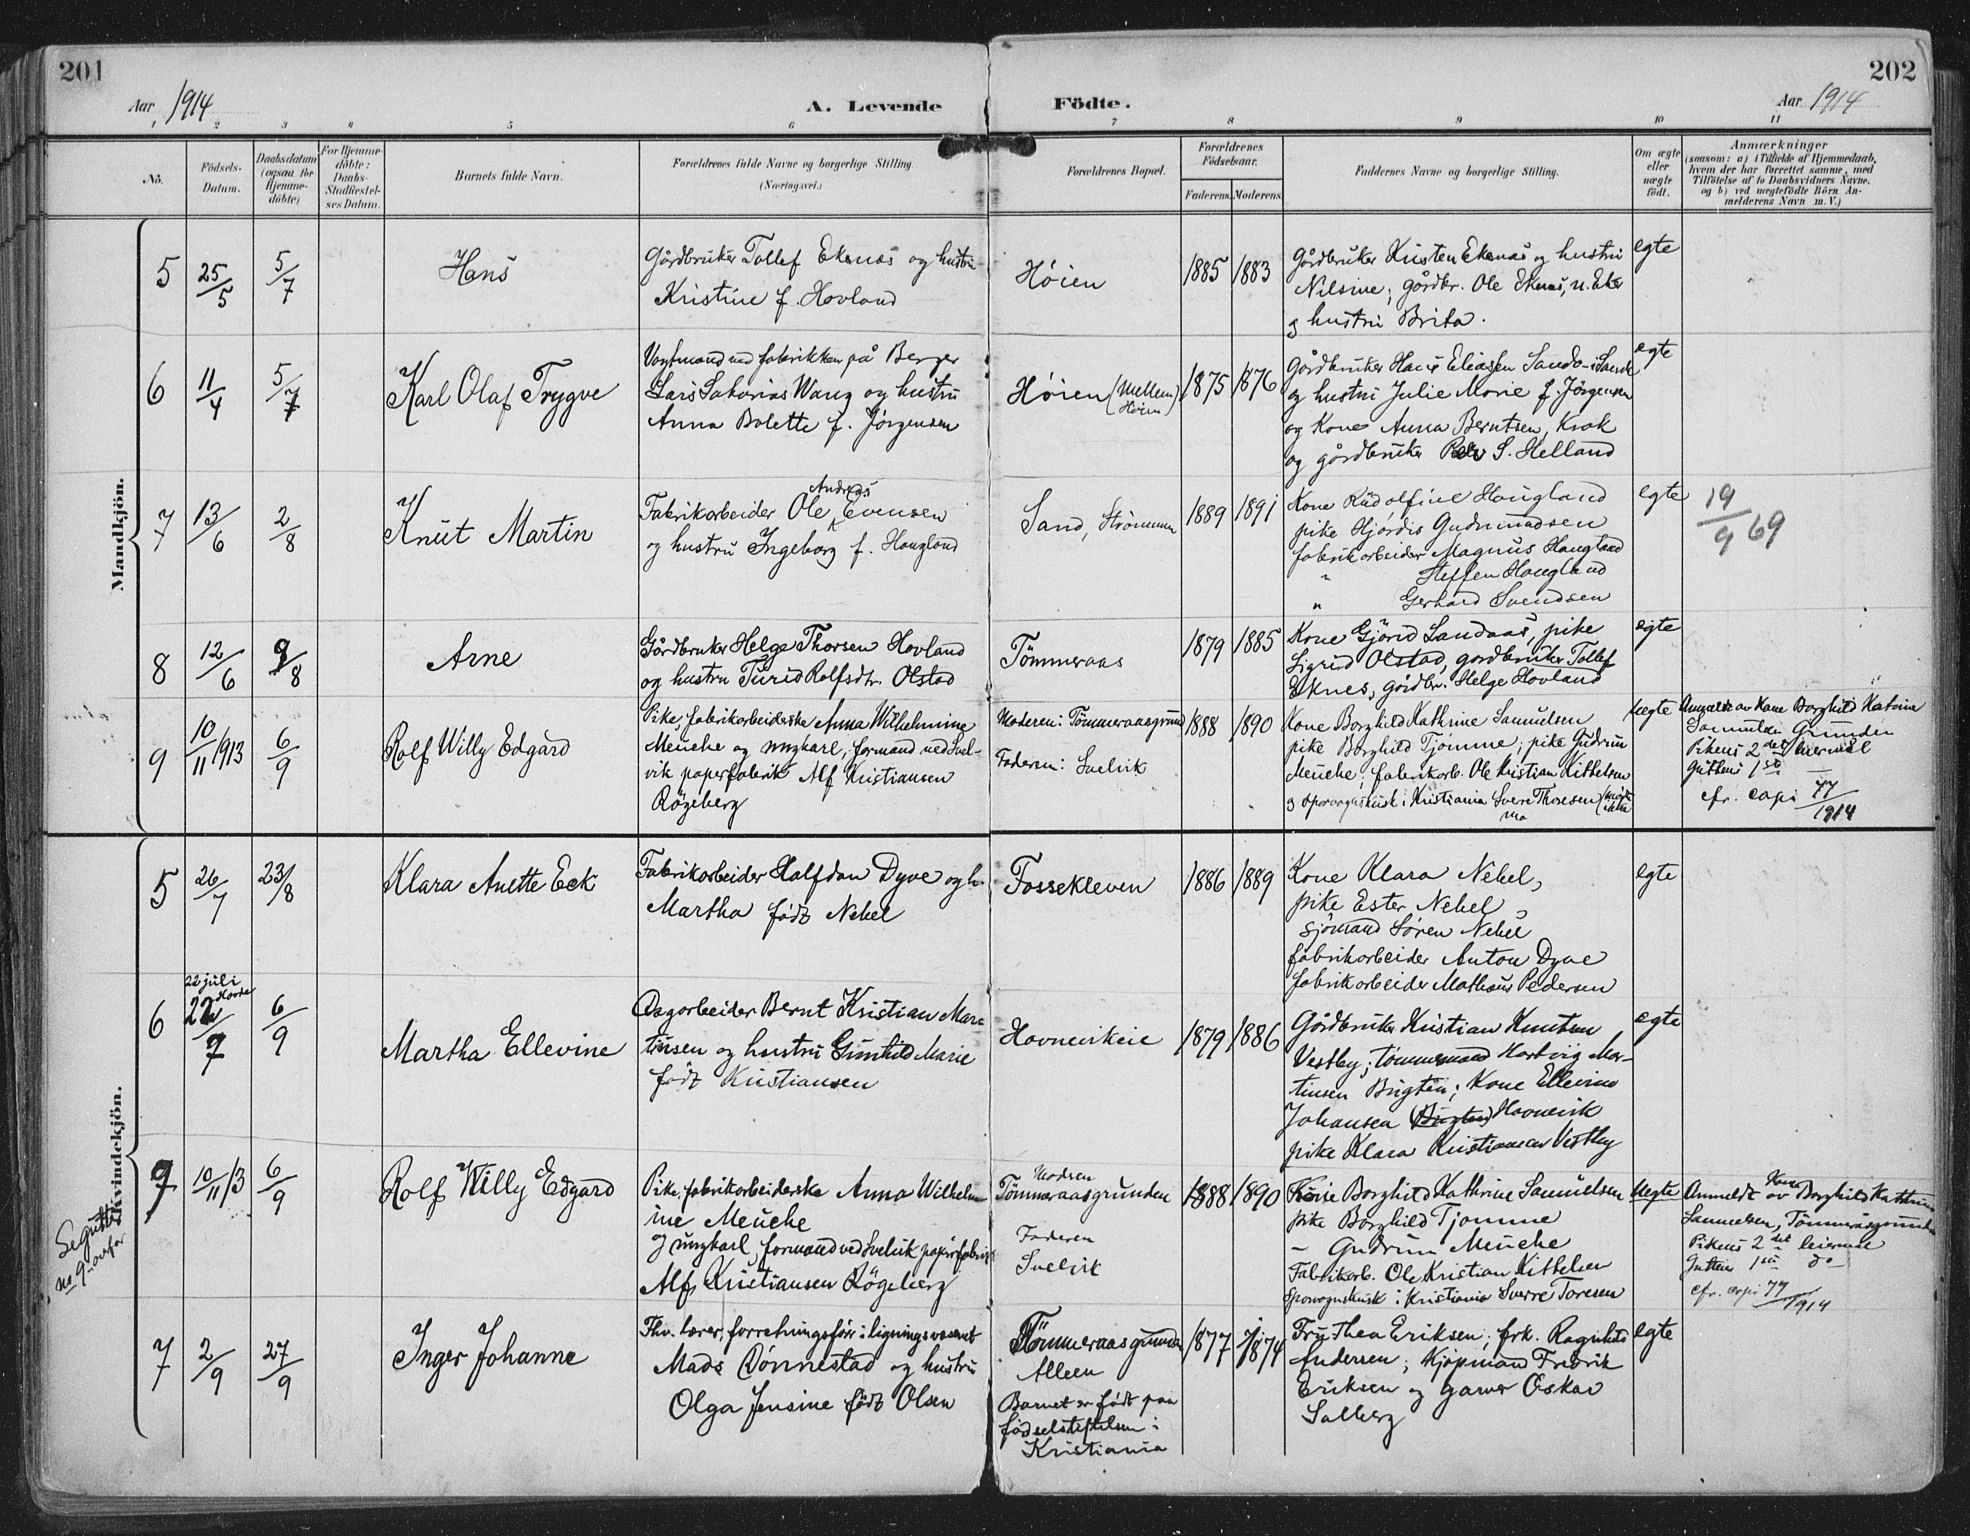 201
202
Aar 1914
A. Levende
Födte.
Aar 1914
1 2 3 4 5 6 7 8 9 10 11
No.
Födsels-
Datum.
Daabsdatum
(ogsaa for
Hjemme-
döbte)
For Hjemme-
döbte:
Daabs-
Stadfæstel-
ses Datum.
Barnets fulde Navn.
Forældrenes fulde Navne og borgerlige Stilling.
(Næringsvei.)
Forældrenes Bopæl.
Forældrenes
Födselsaar.
Faderens.
Moderens.
Faddernes Navne og borgerlige Stilling.
Om ægte
eller
uægte
födt.
Anmærkninger
(saasom: a) i Tilfælde af Hjemmedaab,
hvem der har forrettet samme, med
Tilföielse af to Daabsvidners Navne,
og b) ved uægtefödte Börn An-
melderens Navn m. V.)
Mandkjön.
5
25/5
5/7
Hans
Gårdbruker Tollef Ekenæs og hustru
Kristine f. Hovland
Høien
1885
1883
Gårdbruker Kristen Ekenæs og hustru
Nilsine; gårdbr. Ole Ekenæs, n. Eker
og hustru Brita.
egte
6
11/4
5/7
Karl Olaf Trygve
Vagtmand ved fabrikken på Berger
Lars Sakarias Wang og hustru
Anna Bolette f. Jørgensen
Høien (Mellem
Høien)
1875
1876
Gårdbruker Hans Eliasen Sando i Sande
og hustru Julie Marie f. Jörgensen
og Kone Anna Berntsen, Krok
og gårdbruker Peder S. Helland
egte
7
13/6
2/8
Knut Martin
Andreas
Fabrikarbeider Ole Evensen
og hustru Ingeborg f. Haugland
Sand, Strömmen
1889
1891
Kone Rudolfine Haugland
pike Hjördis Gudmundsen
fabrikarbeider Magnus Haugland
" Steffen Haugland
" Gerhard Svendsen
egte
19/9 69
8
12/6
9/8
Arne
Gårdbruker Helge Thorsen Hovland
og hustru Turid Rolfsdtr. Olstad
Tömmeraas
1879
1885
Kone Gjörid Landaas, pike
Sigrid Olstad, gardbruker Tollef
Eknes, gårdbr. Helge Hovland
egte
9
10/11 1913
6/9
Rolf Willy Edgard
Pike, fabrikarbeiderske Anna Wilhelmine
Meuche og ungkarl, formand ved Svel-
vik papirfabrik Alf Kristiansen
Rögeberg
Moderen: Tömmeraasgrund
Faderen: Svelvik
1888
1890
Kone Borghild Kathrine Samuelsen
pike Borghild Tjömme; pike Gudrun
Meuche; fabrikarb. Ole Kristian Kittelsen
og sporvognskusk i Kristiania Sverre Thoresen
uegte
Anmeldt av Kone Borghild Katrine
Samuelsen Grunden
Pikens 2det leiermål
Guttens 1ste
cfr. copi 77/1914
Kvindekjön.
5
26/7
23/8
Klara Anette Eek
Fabrikarbeider Halfdan Dyve og h.
Martha födt Nebel
Fossekleven
1886
1889
Kone Klara Nebel,
pike Ester Nebel
sjömand Sören Nebel
fabrikarbeider Anton Dyve
fabrikarbeider Mathæus Pedersen
egte
22 juli
6
22/7
6/9
Martha Ellevine
Dagarbeider Bernt Kristian Mar-
tinsen og hustru Gunhild Marie
födt Kristiansen
Havnevikeie
1879
1886
Gårdbruker Kristian Knutsen
Vestby; tömmermand Hartvig Mar-
tinsen Brigten; Kone Ellevine
Johansen Havnevik
pike Klara Kristiansen Vestby
egte
9
10/11 13
6/9
Rolf Willy Edgard
Pike, fabrikarbeiderske Anna Wilhelm
ine Meuche
og ungkarl, formand ved Svelvik papirfabrik
Alf Kristiansen Rögeberg
Moderen
Tömmeraasgrunden
Faderen
Svelvik
1888
1890
Kone Borghild Kathrine Samuelsen
pike Borghild Tjomme
— Gudrun Meuche
Fabrikarb. Ole Kristian Kittelsen
Sporvognskusk i Kristiania Sverre Toresen
Uegte
Kone
Anmeldt av Borghild Kathrine
Samuelsen, Tömmeråsgrunden
Pikens 2det leiermål
Guttens 1ste do
cfr. copi 77/1914
Se gutter
no 9 ovfor
7
2/9
27/9
Inger Johanne
Fhv. lærer, forretningsförer i ligningsvæsenet
Mads Dønnestad og hustru
Olga Jensine födt Olsen
Tömmeraasgrunden
Alleen
Barnet er födt paa
födselsstiftelsen i
Kristiania
1877
1874
Fru Thea Eriksen; frk. Ragnhild
Andersen; kjöpmand Fredrik
Eriksen og garver Oskar
Solberg
egte